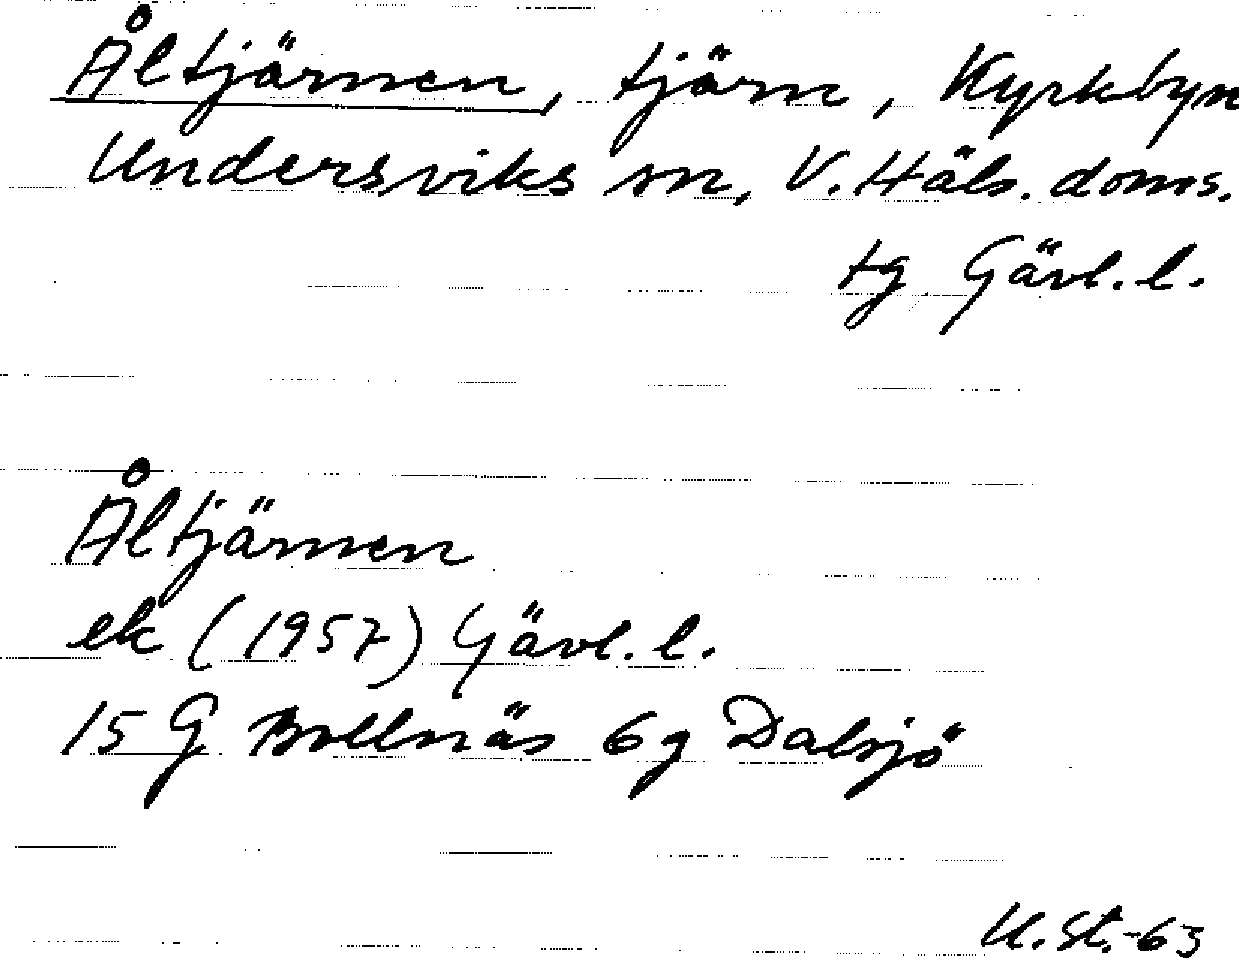 Åltjärnen, tjärn, Kyrkbyn
Undersviks sn, V. Häls. doms.
tg Gävl. l.
Åltjärnen
ek (1957) Gävl. l.
15 G Bollnäs 6g Dalsjö
U. St.-63